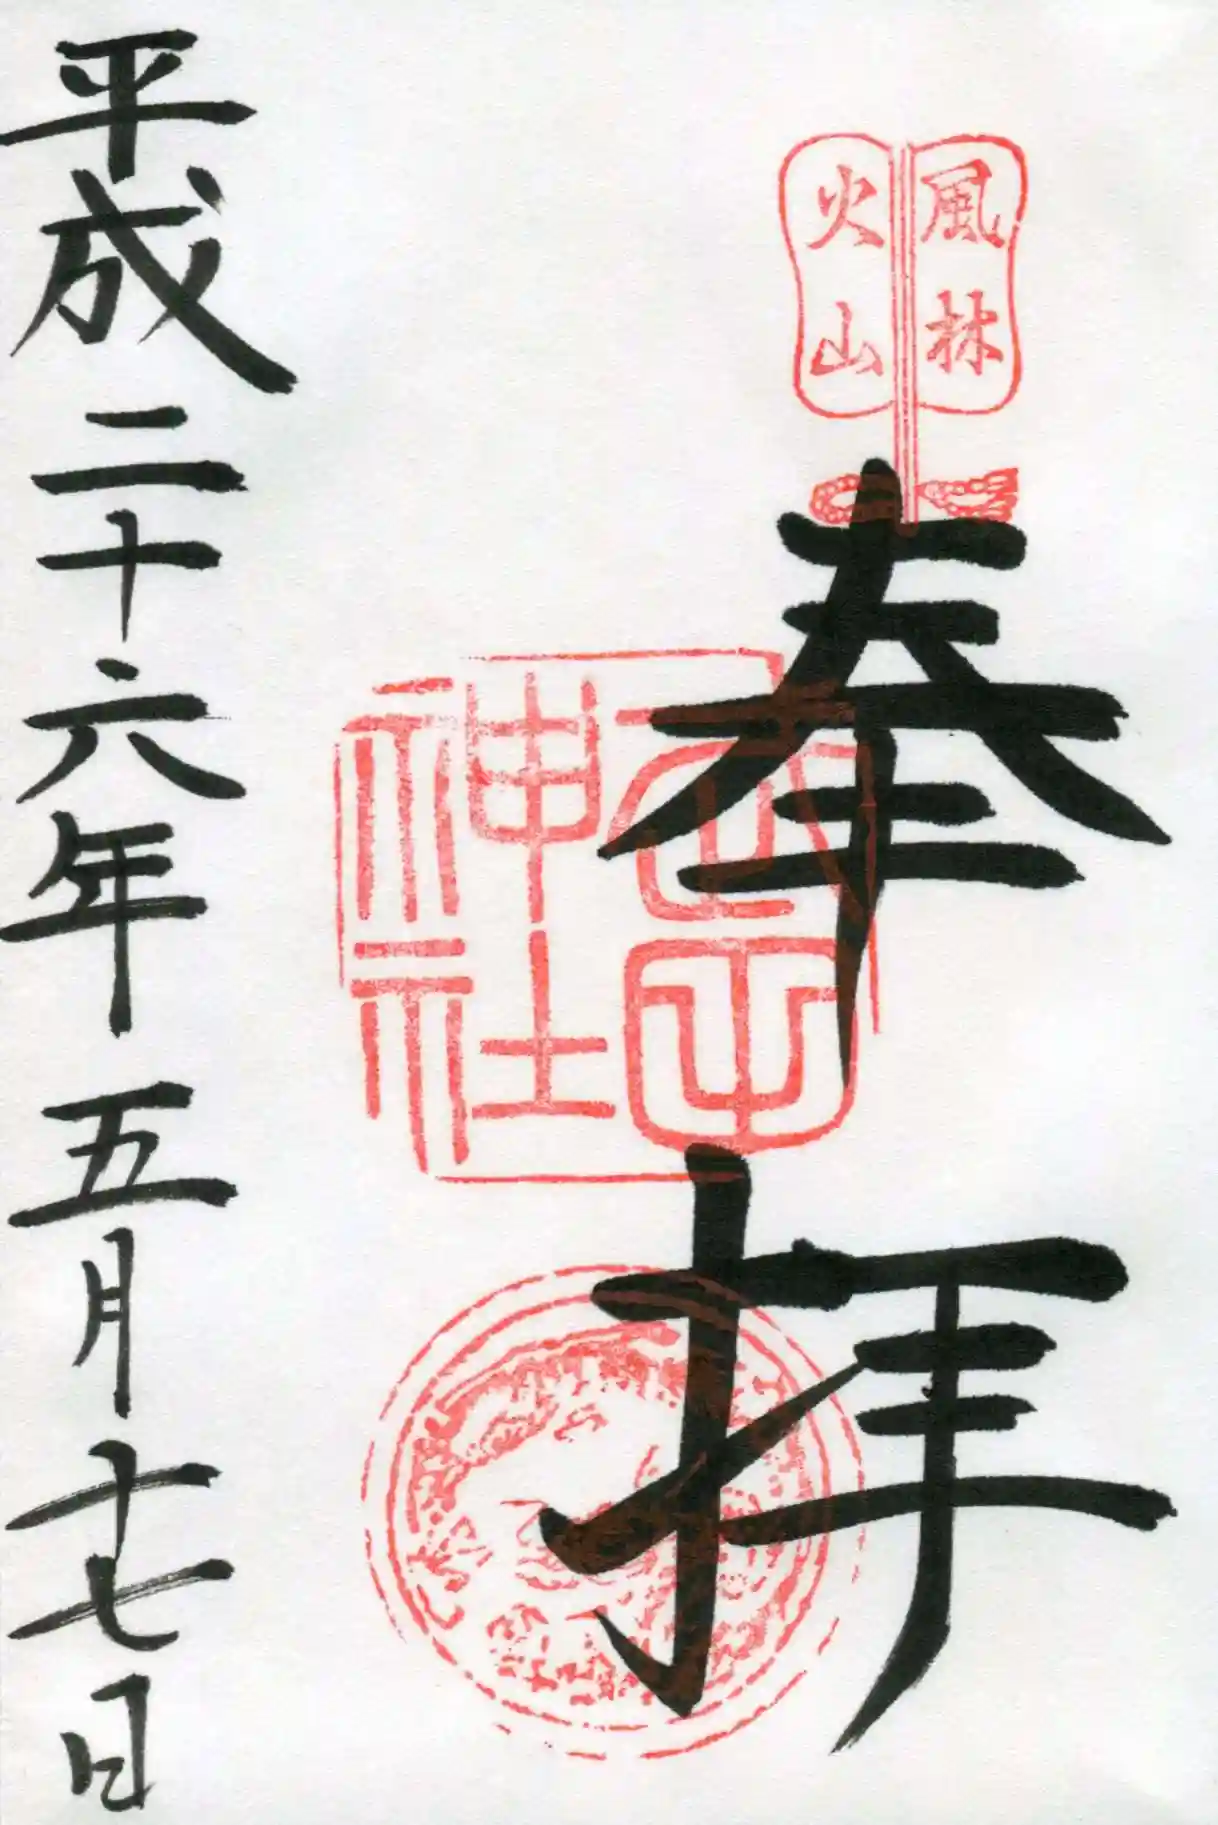 風林
火山
奉拝
武田
神社
平成二十六年五月十七日